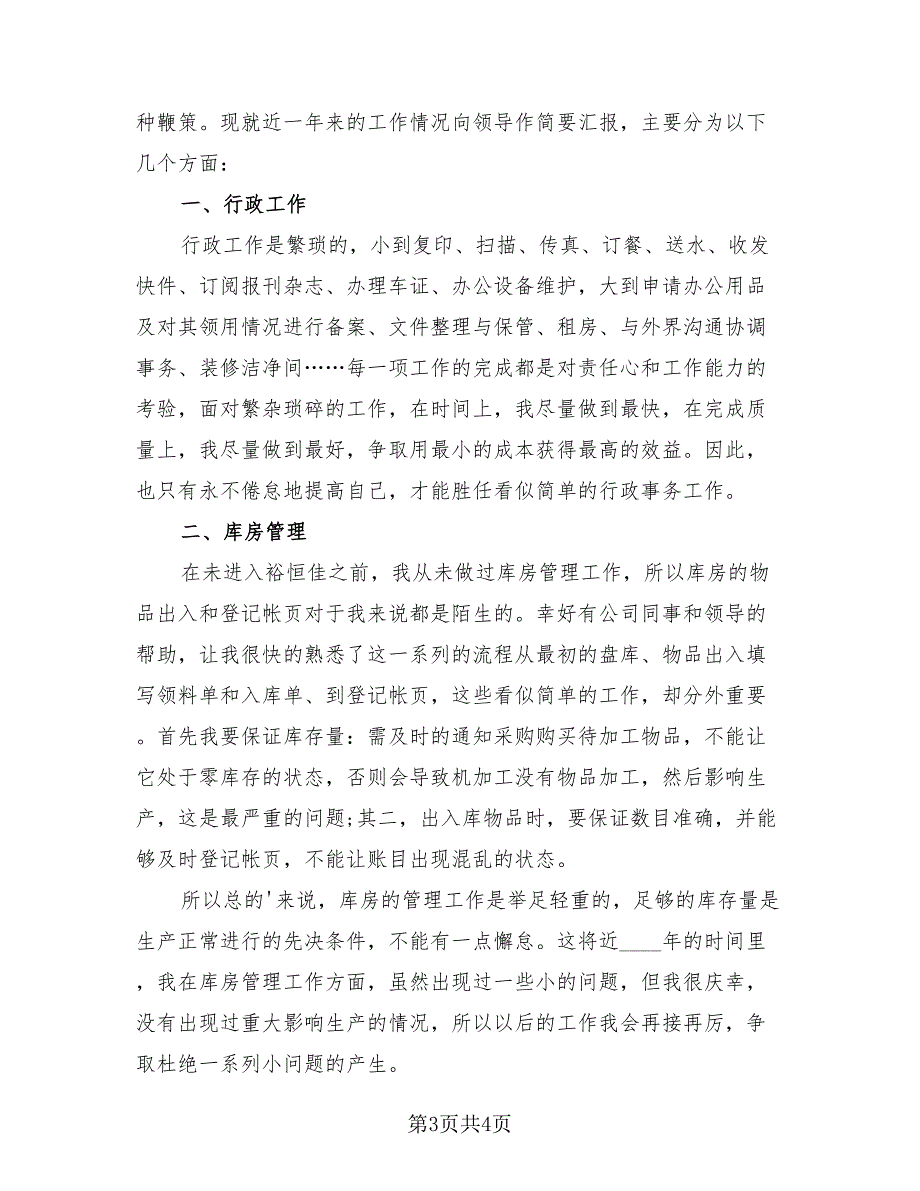 种鞭策。现就近一年来的工作情况向领导作简要汇报，主要分为以下
几个方面：
一、行政工作
行政工作是繁琐的，小到复印、扫描、传真、订餐、送水、收发
快件、订阅报刊杂志、办理车证、办公设备维护，大到申请办公用品
及对其领用情况进行备案、文件整理与保管、租房、与外界沟通协调
事务、装修洁净间……每一项工作的完成都是对责任心和工作能力的
考验，面对繁杂琐碎的工作，在时间上，我尽量做到最快，在完成质
量上，我尽量做到最好，争取用最小的成本获得最高的效益。因此，
也只有永不倦怠地提高自己，才能胜任看似简单的行政事务工作。
二、库房管理
在未进入裕恒佳之前，我从未做过库房管理工作，所以库房的物
品出入和登记帐页对于我来说都是陌生的。幸好有公司同事和领导的
帮助，让我很快的熟悉了这一系列的流程从最初的盘库、物品出入填
写领料单和入库单、到登记帐页，这些看似简单的工作，却分外重要
。首先我要保证库存量：需及时的通知采购购买待加工物品，不能让
它处于零库存的状态，否则会导致机加工没有物品加工，然后影响生
产，这是最严重的问题;其二，出入库物品时，要保证数目准确，并能
够及时登记帐页，不能让账目出现混乱的状态。
所以总的'来说，库房的管理工作是举足轻重的，足够的库存量是
生产正常进行的先决条件，不能有一点懈怠。这将近____年的时间里
，我在库房管理工作方面，虽然出现过一些小的问题，但我很庆幸，
没有出现过重大影响生产的情况，所以以后的工作我会再接再厉，争
取杜绝一系列小问题的产生。
第3页共4页